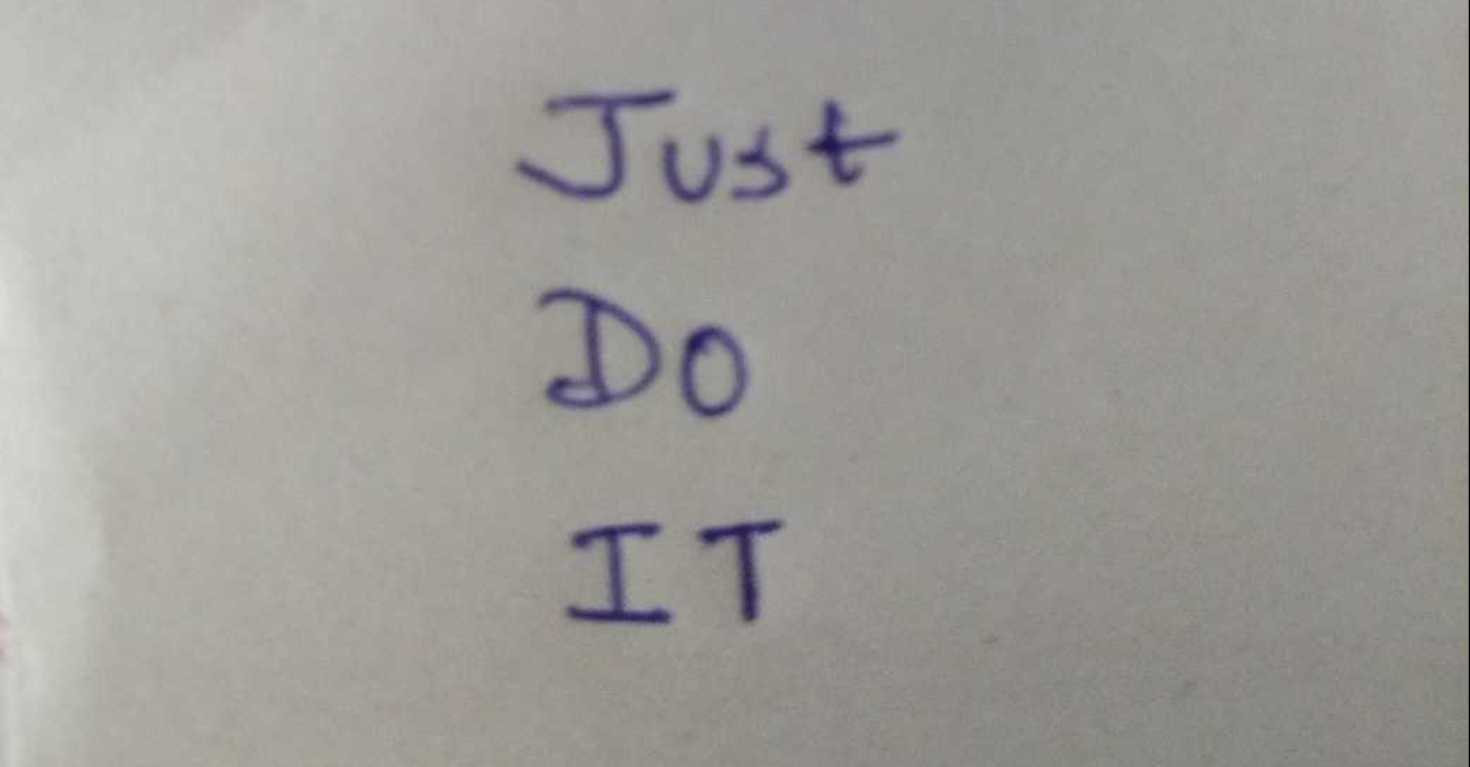 Just
DO
IT